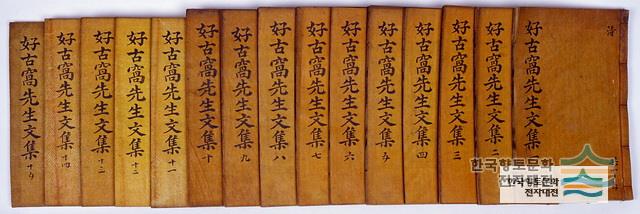 好古窩先生文集
好古窩先生文集 二
好古窩先生文集 三
好古窩先生文集 四
好古窩先生文集 五
好古窩先生文集 六
好古窩先生文集 七
好古窩先生文集 八
好古窩先生文集 九
好古窩先生文集 十
好古窩先生文集 十一
好古窩先生文集 十二
好古窩先生文集 十三
好古窩先生文集 十四
好古窩先生文集 十五
한국향토문화
전자대전
한국향토문화
전자대전